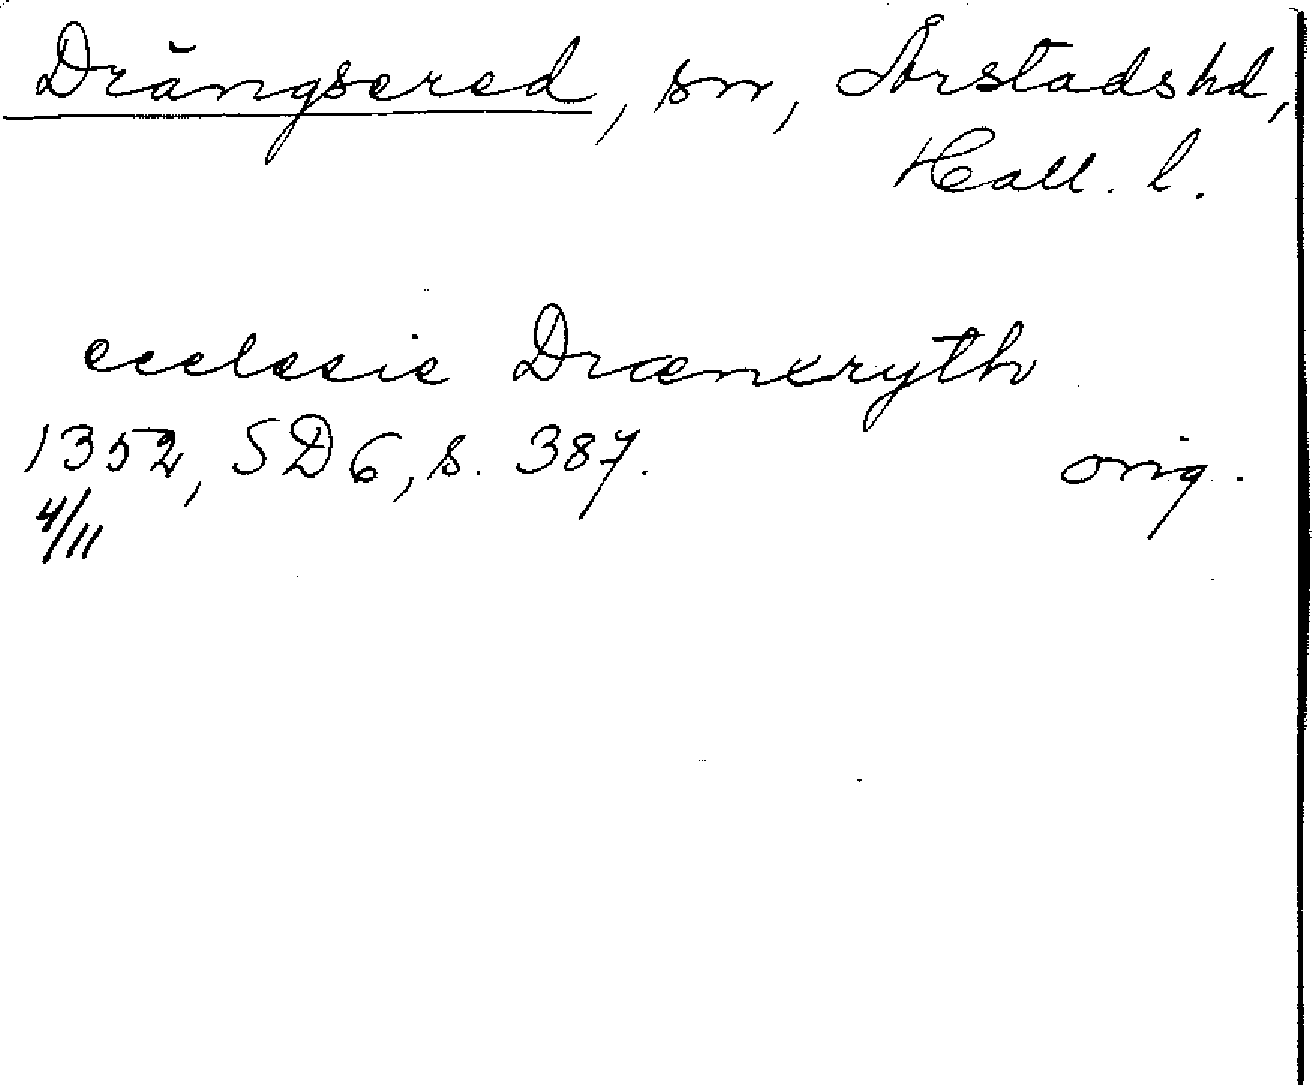 Drängsered, sn, Årstadshd,
Hall. l.
ecclesie Drænxryth
1352, SD 6, s. 387. orig.
4/11